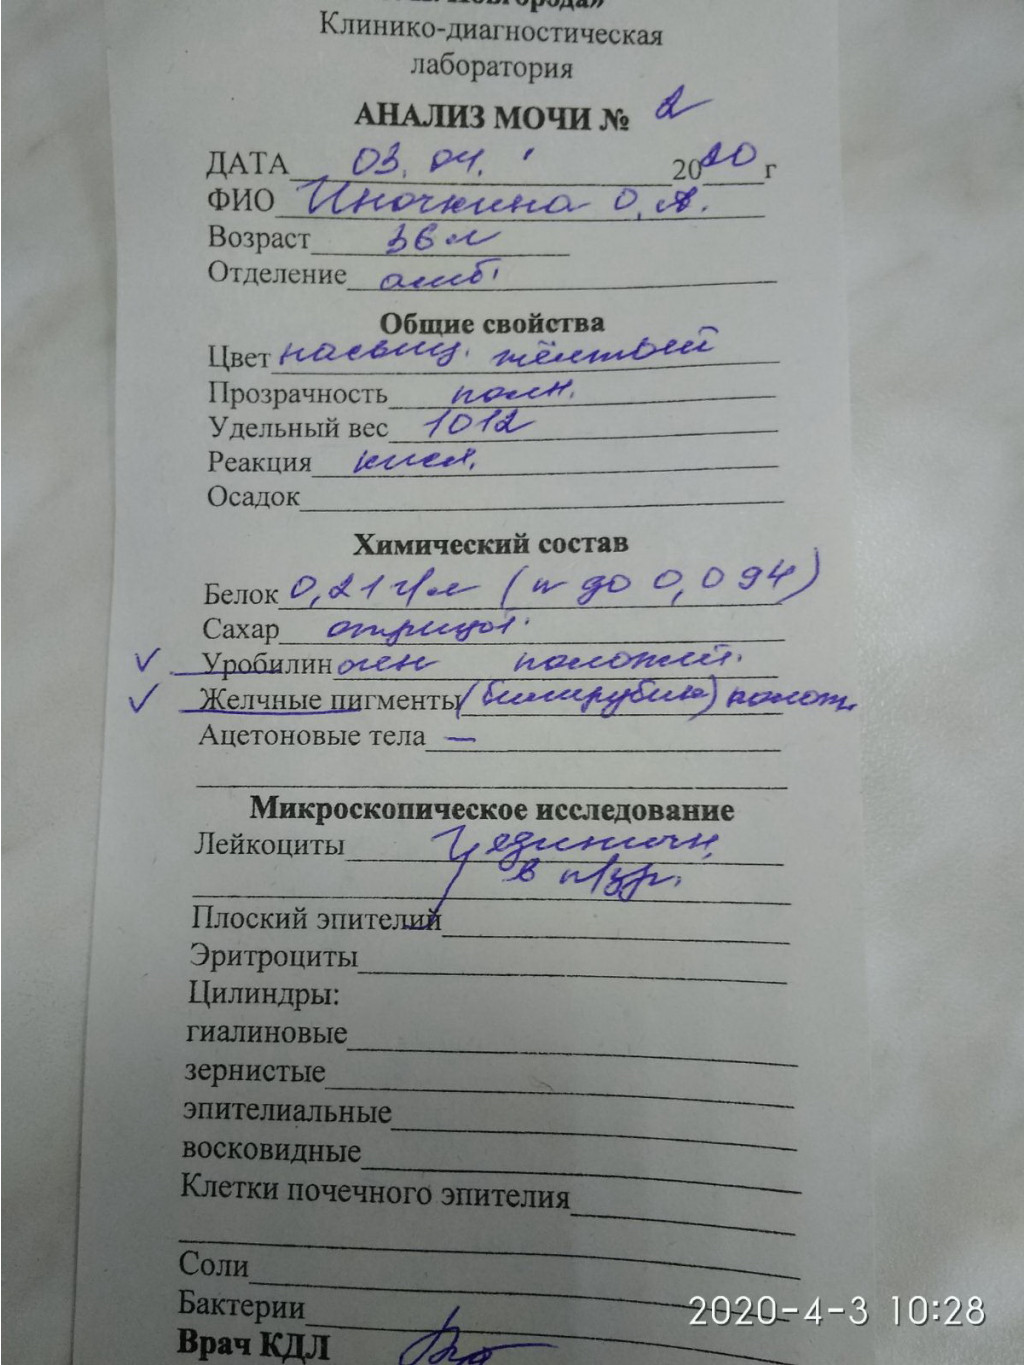 Новгорода»
Клинико-диагностическая
лаборатория
АНАЛИЗ МОЧИ № 2
ДАТА 03.04. 2020 г
ФИО Иночкина О.А.
Возраст 36 л
Отделение амб.
Общие свойства
Цвет насыщ. жёлтый
Прозрачность полн.
Удельный вес 1012
Реакция кисл.
Осадок
Химический состав
Белок 0,21 г/л (n до 0,094)
Сахар отрицат.
✓ Уробилиноген положит.
✓ Желчные пигменты (билирубин) полож.
Ацетоновые тела —
Микроскопическое исследование
Лейкоциты единичн.
в п/зр.
Плоский эпителий
Эритроциты
Цилиндры:
гиалиновые
зернистые
эпителиальные
восковидные
Клетки почечного эпителия
Соли
Бактерии
2020-4-3 10:28
Врач КДЛ